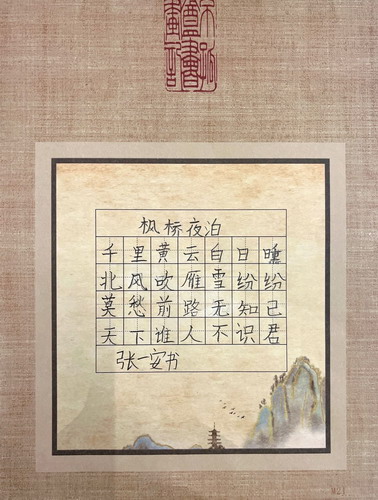 枫桥夜泊
千里黄云白日曛
北风吹雁雪纷纷
莫愁前路无知己
天下谁人不识君
张一安书